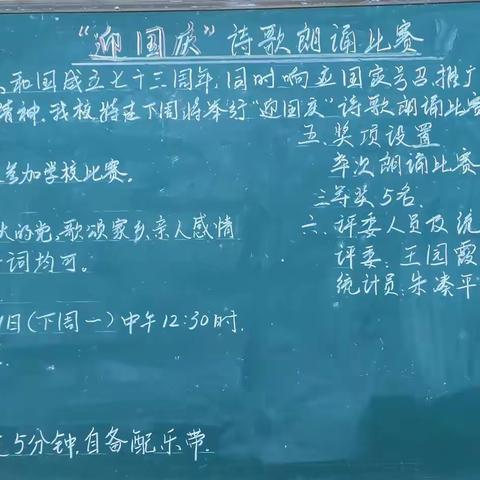 “迎国庆”诗歌朗诵比赛
和国成立七十三周年,同时响应国家号召,推广
精神,我校特在下周将举行“迎国庆”诗歌朗诵比赛
参加学校比赛。
大的党,歌颂家乡、亲人感情
词均可。
日(下周一)中午12:30时.
5分钟,自备配乐带.
五、奖项设置
本次朗诵比赛
三等奖5名.
六、评委人员及统
评委:王园霞
统计员:朱凑平